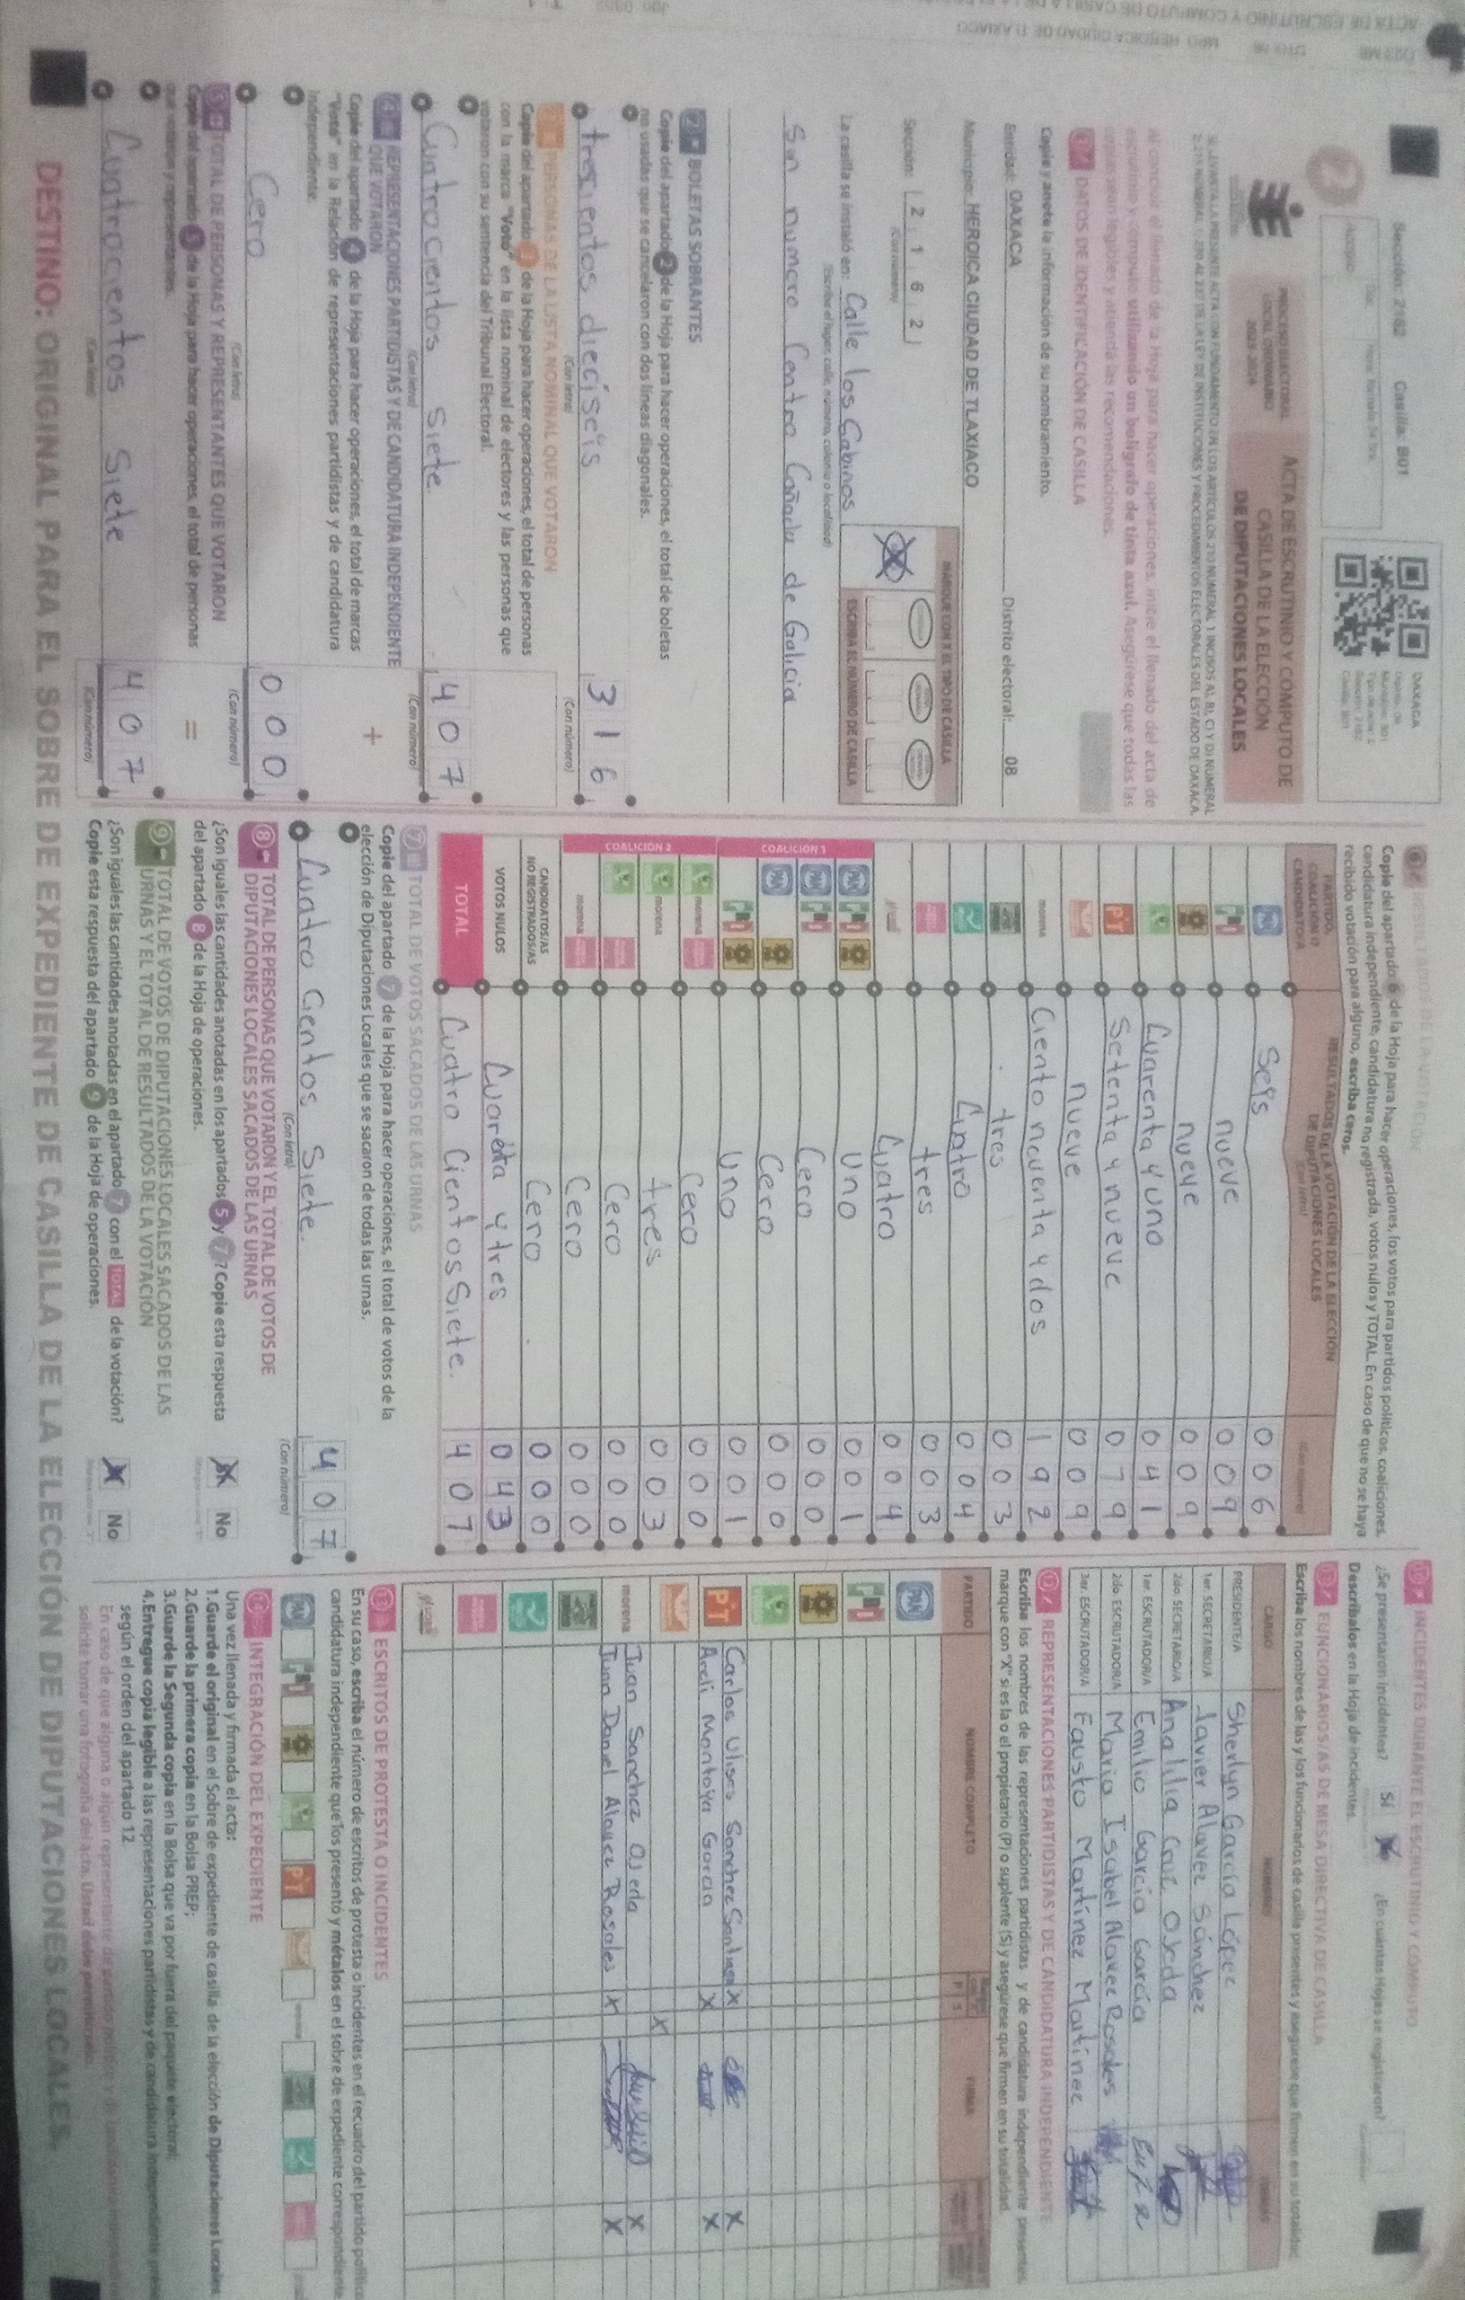 Sección: 2162 Casilla: B01
OAXACA
PROCESO ELECTORAL
LOCAL ORDINARIO
2023-2024
ACTA DE ESCRUTINIO Y CÓMPUTO DE
CASILLA DE LA ELECCIÓN
DE DIPUTACIONES LOCALES
Al concluir el llenado de la Hoja para hacer operaciones, inicie el llenado del acta de
escrutinio y cómputo utilizando un bolígrafo de tinta azul. Asegúrese que todas las
copias sean legibles y atienda las recomendaciones.
1 DATOS DE IDENTIFICACIÓN DE CASILLA
Copie y anote la información de su nombramiento.
Entidad: OAXACA Distrito electoral: 08
Municipio: HEROICA CIUDAD DE TLAXIACO
Sección: 2 1 6 2
(Con número)
MARQUE CON X EL TIPO DE CASILLA
ESCRIBA EL NÚMERO DE CASILLA
La casilla se instaló en: Calle los Sabinos
(Escriba el lugar, calle, número, colonia o localidad)
Sin numero Centro Cañada de Galicia
2 BOLETAS SOBRANTES
Copie del apartado 2 de la Hoja para hacer operaciones, el total de boletas
no usadas que se cancelaron con dos líneas diagonales.
trescientos dieciseis 3 1 6
(Con letra) (Con número)
3 PERSONAS DE LA LISTA NOMINAL QUE VOTARON
Copie del apartado 3 de la Hoja para hacer operaciones, el total de personas
con la marca "Votó" en la lista nominal de electores y las personas que
votaron con su sentencia del Tribunal Electoral.
Cuatrocientos Siete 4 0 7
(Con letra) (Con número)
4 REPRESENTACIONES PARTIDISTAS Y DE CANDIDATURA INDEPENDIENTE
QUE VOTARON
Copie del apartado 4 de la Hoja para hacer operaciones, el total de marcas
"Votó" en la Relación de representaciones partidistas y de candidatura
independiente.
+
Cero 0 0 0
(Con letra) (Con número)
5 TOTAL DE PERSONAS Y REPRESENTANTES QUE VOTARON
Copie del apartado 5 de la Hoja para hacer operaciones, el total de personas
que votaron y representantes.
=
Cuatrocientos Siete 4 0 7
(Con letra) (Con número)
6 RESULTADOS DE LA VOTACIÓN
Copie del apartado 6 de la Hoja para hacer operaciones, los votos para partidos políticos, coaliciones,
candidatura independiente, candidatura no registrada, votos nulos y TOTAL. En caso de que no se haya
recibido votación para alguno, escriba ceros.
PARTIDO,
COALICIÓN O
CANDIDATO/A
RESULTADOS DE LA VOTACIÓN DE LA ELECCIÓN
DE DIPUTACIONES LOCALES
(Con letra)
PAN Seis 0 0 6
PRI nueve 0 0 9
PRD nueve 0 0 9
Cuarenta y uno 0 4 1
PT Setenta y nueve 0 7 9
nueve 0 0 9
morena Ciento noventa y dos 1 9 2
tres 0 0 3
Cuatro 0 0 4
tres 0 0 3
Cuatro 0 0 4
COALICIÓN 1
Uno 0 0 1
Cero 0 0 0
Cero 0 0 0
Uno 0 0 1
COALICIÓN 2
Cero 0 0 0
morena tres 0 0 3
Cero 0 0 0
morena Cero 0 0 0
CANDIDATOS/AS
NO REGISTRADOS/AS Cero 0 0 0
VOTOS NULOS Cuarenta y tres 0 4 3
TOTAL Cuatro Cientos Siete. 4 0 7
7 TOTAL DE VOTOS SACADOS DE LAS URNAS
Copie del apartado 7 de la Hoja para hacer operaciones, el total de votos de la
elección de Diputaciones Locales que se sacaron de todas las urnas.
Cuatro Cientos Siete. 4 0 7
(Con letra) (Con número)
8 TOTAL DE PERSONAS QUE VOTARON Y EL TOTAL DE VOTOS DE
DIPUTACIONES LOCALES SACADOS DE LAS URNAS
¿Son iguales las cantidades anotadas en los apartados 5 y 7? Copie esta respuesta
del apartado 8 de la Hoja de operaciones.
X No
9 TOTAL DE VOTOS DE DIPUTACIONES LOCALES SACADOS DE LAS
URNAS Y EL TOTAL DE RESULTADOS DE LA VOTACIÓN
¿Son iguales las cantidades anotadas en el apartado 7 con el TOTAL de la votación?
Copie esta respuesta del apartado 9 de la Hoja de operaciones.
X No
10 INCIDENTES DURANTE EL ESCRUTINIO Y CÓMPUTO
¿Se presentaron incidentes? Sí X ¿En cuántas Hojas se registraron?
Descríbalos en la Hoja de incidentes.
11 FUNCIONARIOS/AS DE MESA DIRECTIVA DE CASILLA
Escriba los nombres de las y los funcionarios de casilla presentes y asegúrese que firmen en su totalidad.
CARGO NOMBRE
PRESIDENTE/A Sherlyn García López
1er. SECRETARIO/A Javier Alavez Sánchez
2do SECRETARIO/A Analilia Cruz Ojeda
1er. ESCRUTADOR/A Emilio García García
2do. ESCRUTADOR/A Mario Isabel Alavez Rosales
3er. ESCRUTADOR/A Fausto Martínez Martínez
12 REPRESENTACIONES PARTIDISTAS Y DE CANDIDATURA INDEPENDIENTE
Escriba los nombres de las representaciones partidistas y de candidatura independiente presentes,
marque con "X" si es la o el propietario (P) o suplente (S) y asegúrese que firmen en su totalidad.
PARTIDO NOMBRE COMPLETO P S FIRMA
PT Carlos Ulises Sanchez Santiago X X
Areli Montoya Garcia X X
morena Juan Sanchez Ojeda X X
Juan Daniel Alavez Rosales X X
13 ESCRITOS DE PROTESTA O INCIDENTES
En su caso, escriba el número de escritos de protesta o incidentes en el recuadro del partido político
candidatura independiente que los presentó y métalos en el sobre de expediente correspondiente
14 INTEGRACIÓN DEL EXPEDIENTE
Una vez llenada y firmada el acta:
1.Guarde el original en el Sobre de expediente de casilla de la elección de Diputaciones Locales
2.Guarde la primera copia en la Bolsa PREP;
3.Guarde la Segunda copia en la Bolsa que va por fuera del paquete electoral;
4.Entregue copia legible a las representaciones partidistas y de candidatura independiente
según el orden del apartado 12
DESTINO: ORIGINAL PARA EL SOBRE DE EXPEDIENTE DE CASILLA DE LA ELECCIÓN DE DIPUTACIONES LOCALES.